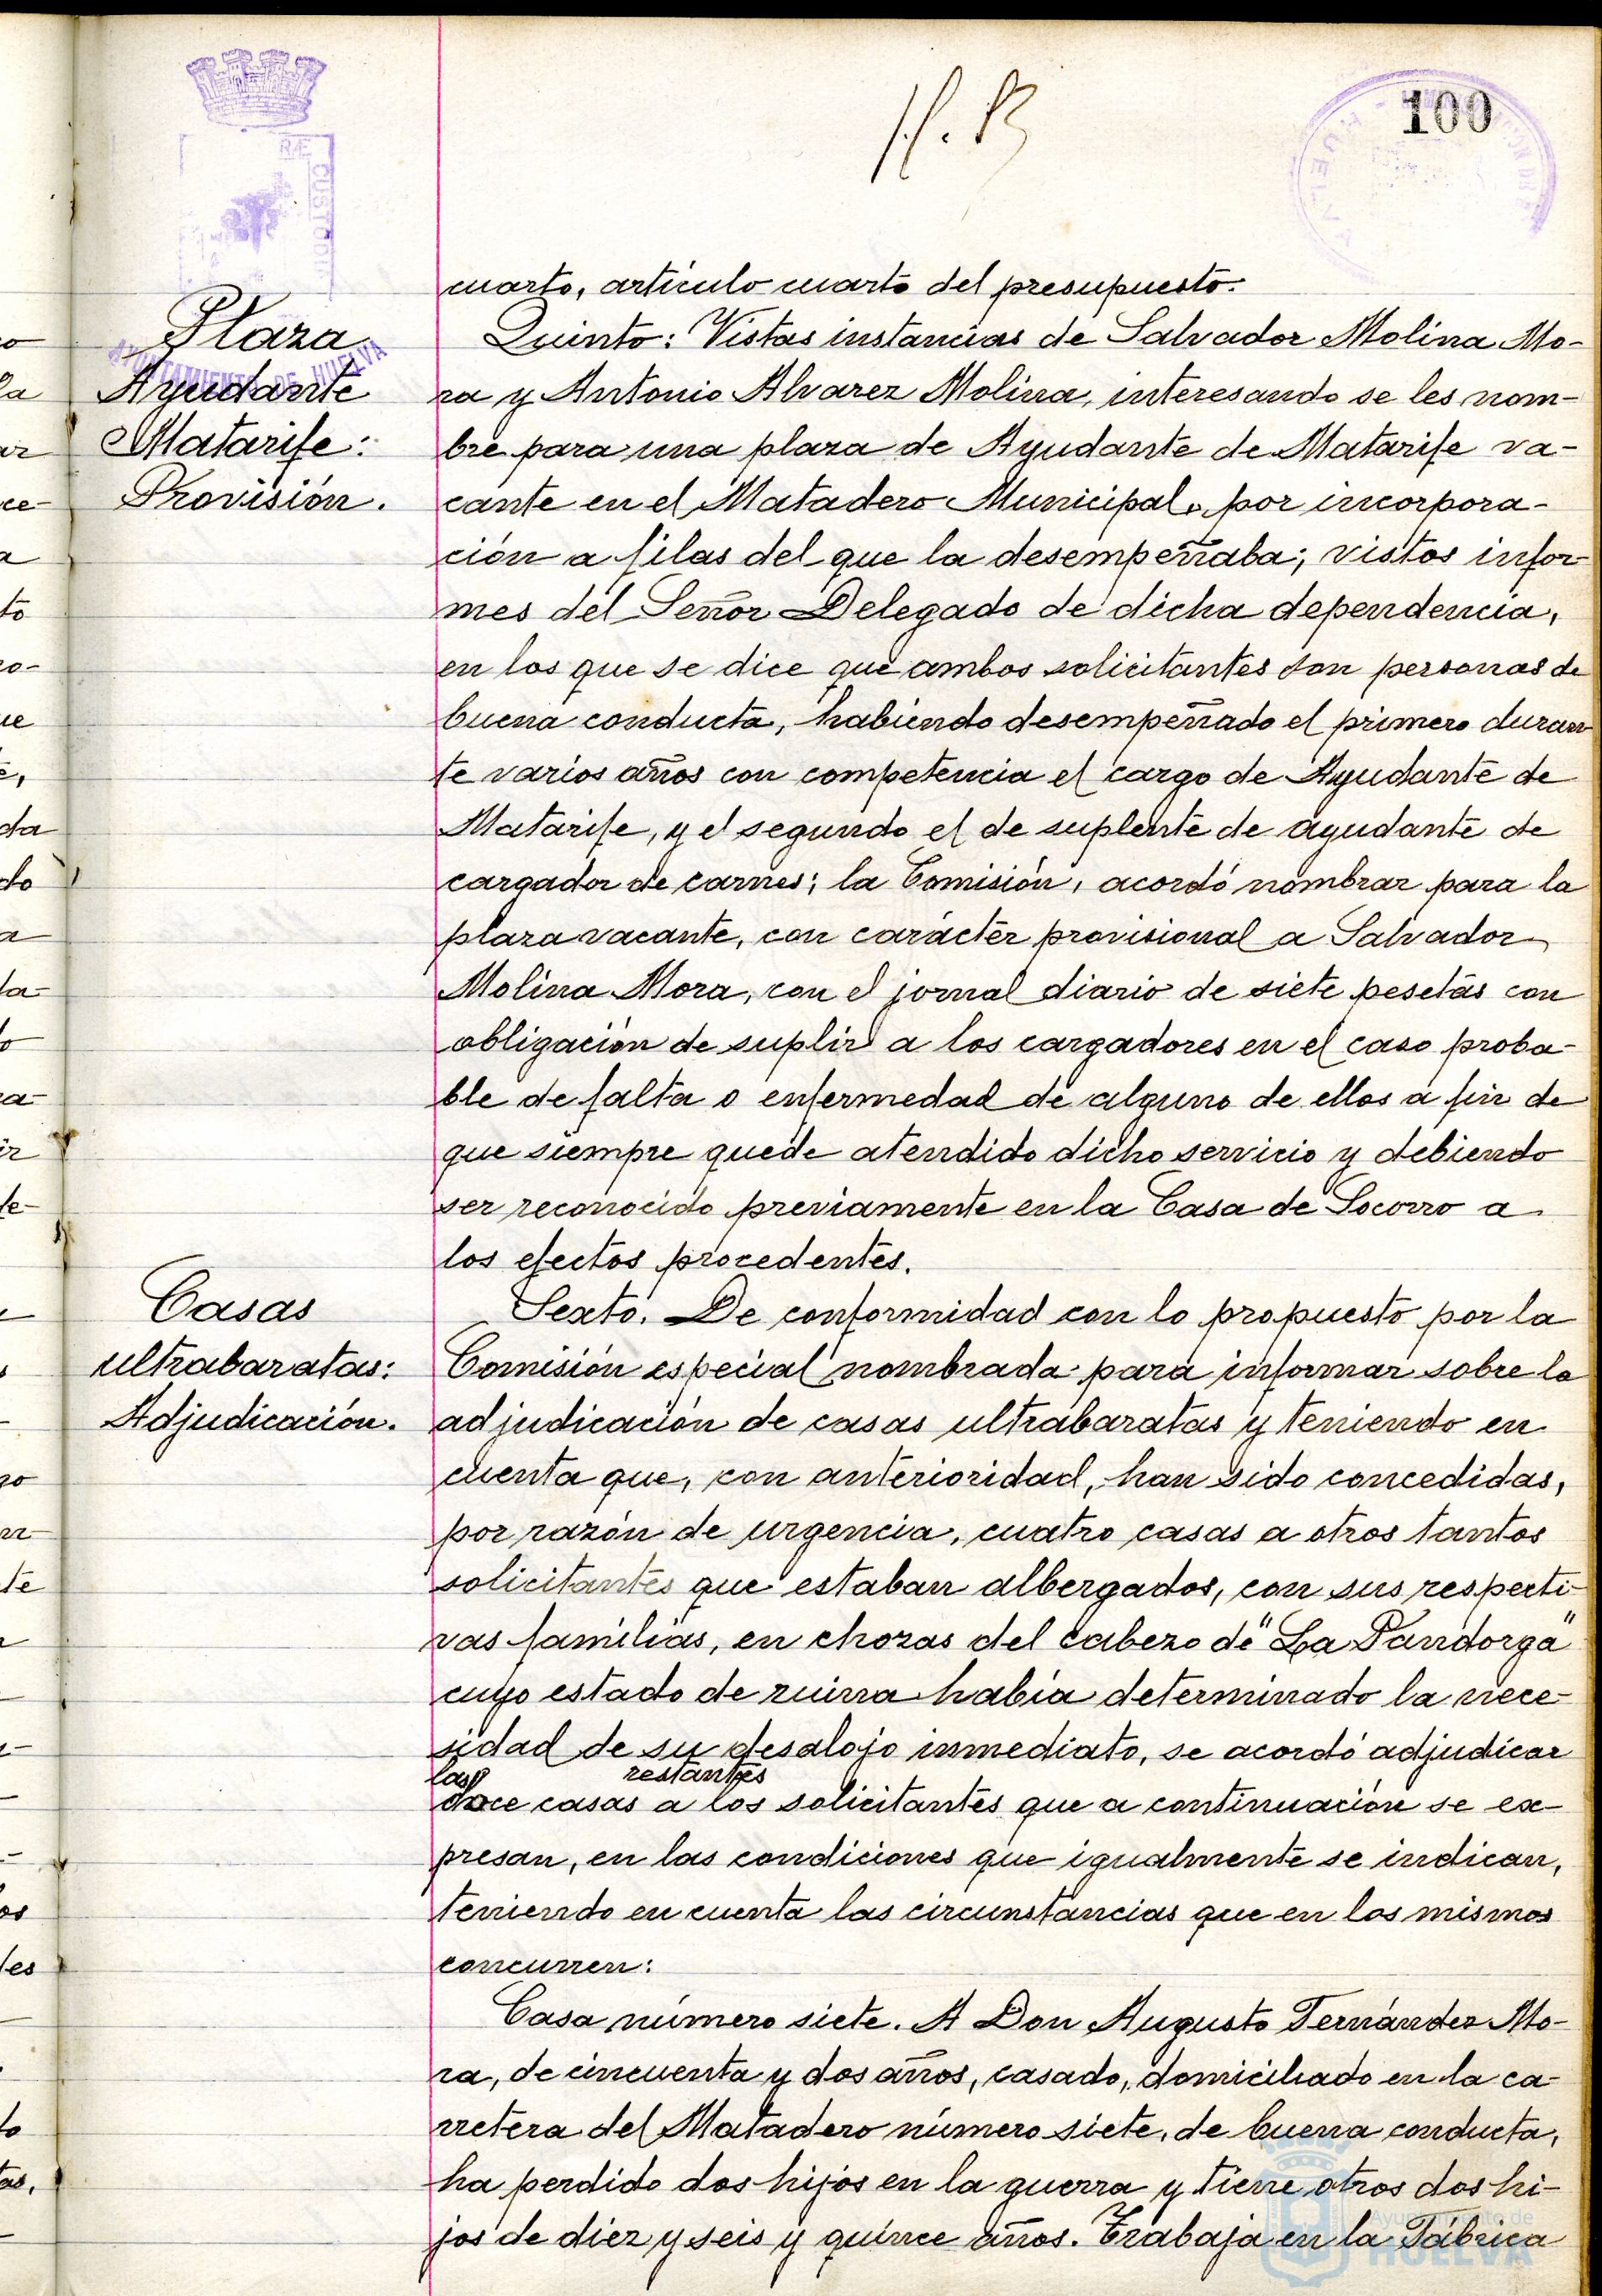 100
cuarto, artículo cuarto del presupuesto.
Plaza
Ayudante
Matarife:
Provisión.
AYUNTAMIENTO DE HUELVA
Quinto: Vistas instancias de Salvador Molina Mo-
ra y Antonio Alvarez Molina, interesando se les nom-
bre para una plaza de Ayudante de Matarife va-
cante en el Matadero Municipal, por incorpora-
ción a filas del que la desempeñaba; vistos infor-
mes del Señor Delegado de dicha dependencia,
en los que se dice que ambos solicitantes son personas de
buena conducta, habiendo desempeñado el primero duran-
te varios años con competencia el cargo de Ayudante de
Matarife, y el segundo el de suplente de ayudante de
cargador de carnes; la Comisión, acordó nombrar para la
plaza vacante, con carácter provisional a Salvador
Molina Mora, con el jornal diario de siete pesetas con
obligación de suplir a los cargadores en el caso proba-
ble de falta o enfermedad de alguno de ellos a fin de
que siempre quede atendido dicho servicio y debiendo
ser reconocido previamente en la Casa de Socorro a
los efectos procedentes.
Casas
ultrabaratas:
Adjudicación.
Sexto. De conformidad con lo propuesto por la
Comisión especial nombrada para informar sobre la
adjudicación de casas ultrabaratas y teniendo en
cuenta que, con anterioridad, han sido concedidas,
por razón de urgencia, cuatro casas a otros tantos
solicitantes que estaban albergados, con sus respecti-
vas familias, en chozas del cabezo de "La Pandorga"
cuyo estado de ruina había determinado la nece-
sidad de su desalojo inmediato, se acordó adjudicar
las restantes
doce casas a los solicitantes que a continuación se ex-
presan, en las condiciones que igualmente se indican,
teniendo en cuenta las circunstancias que en los mismos
concurren:
Casa número siete. A Don Augusto Fernández Mo-
ra, de cincuenta y dos años, casado, domiciliado en la ca-
rretera del Matadero número siete, de buena conducta,
ha perdido dos hijos en la guerra y tiene otros dos hi-
jos de diez y seis y quince años. Trabaja en la Fábrica
Ayuntamiento de
HUELVA